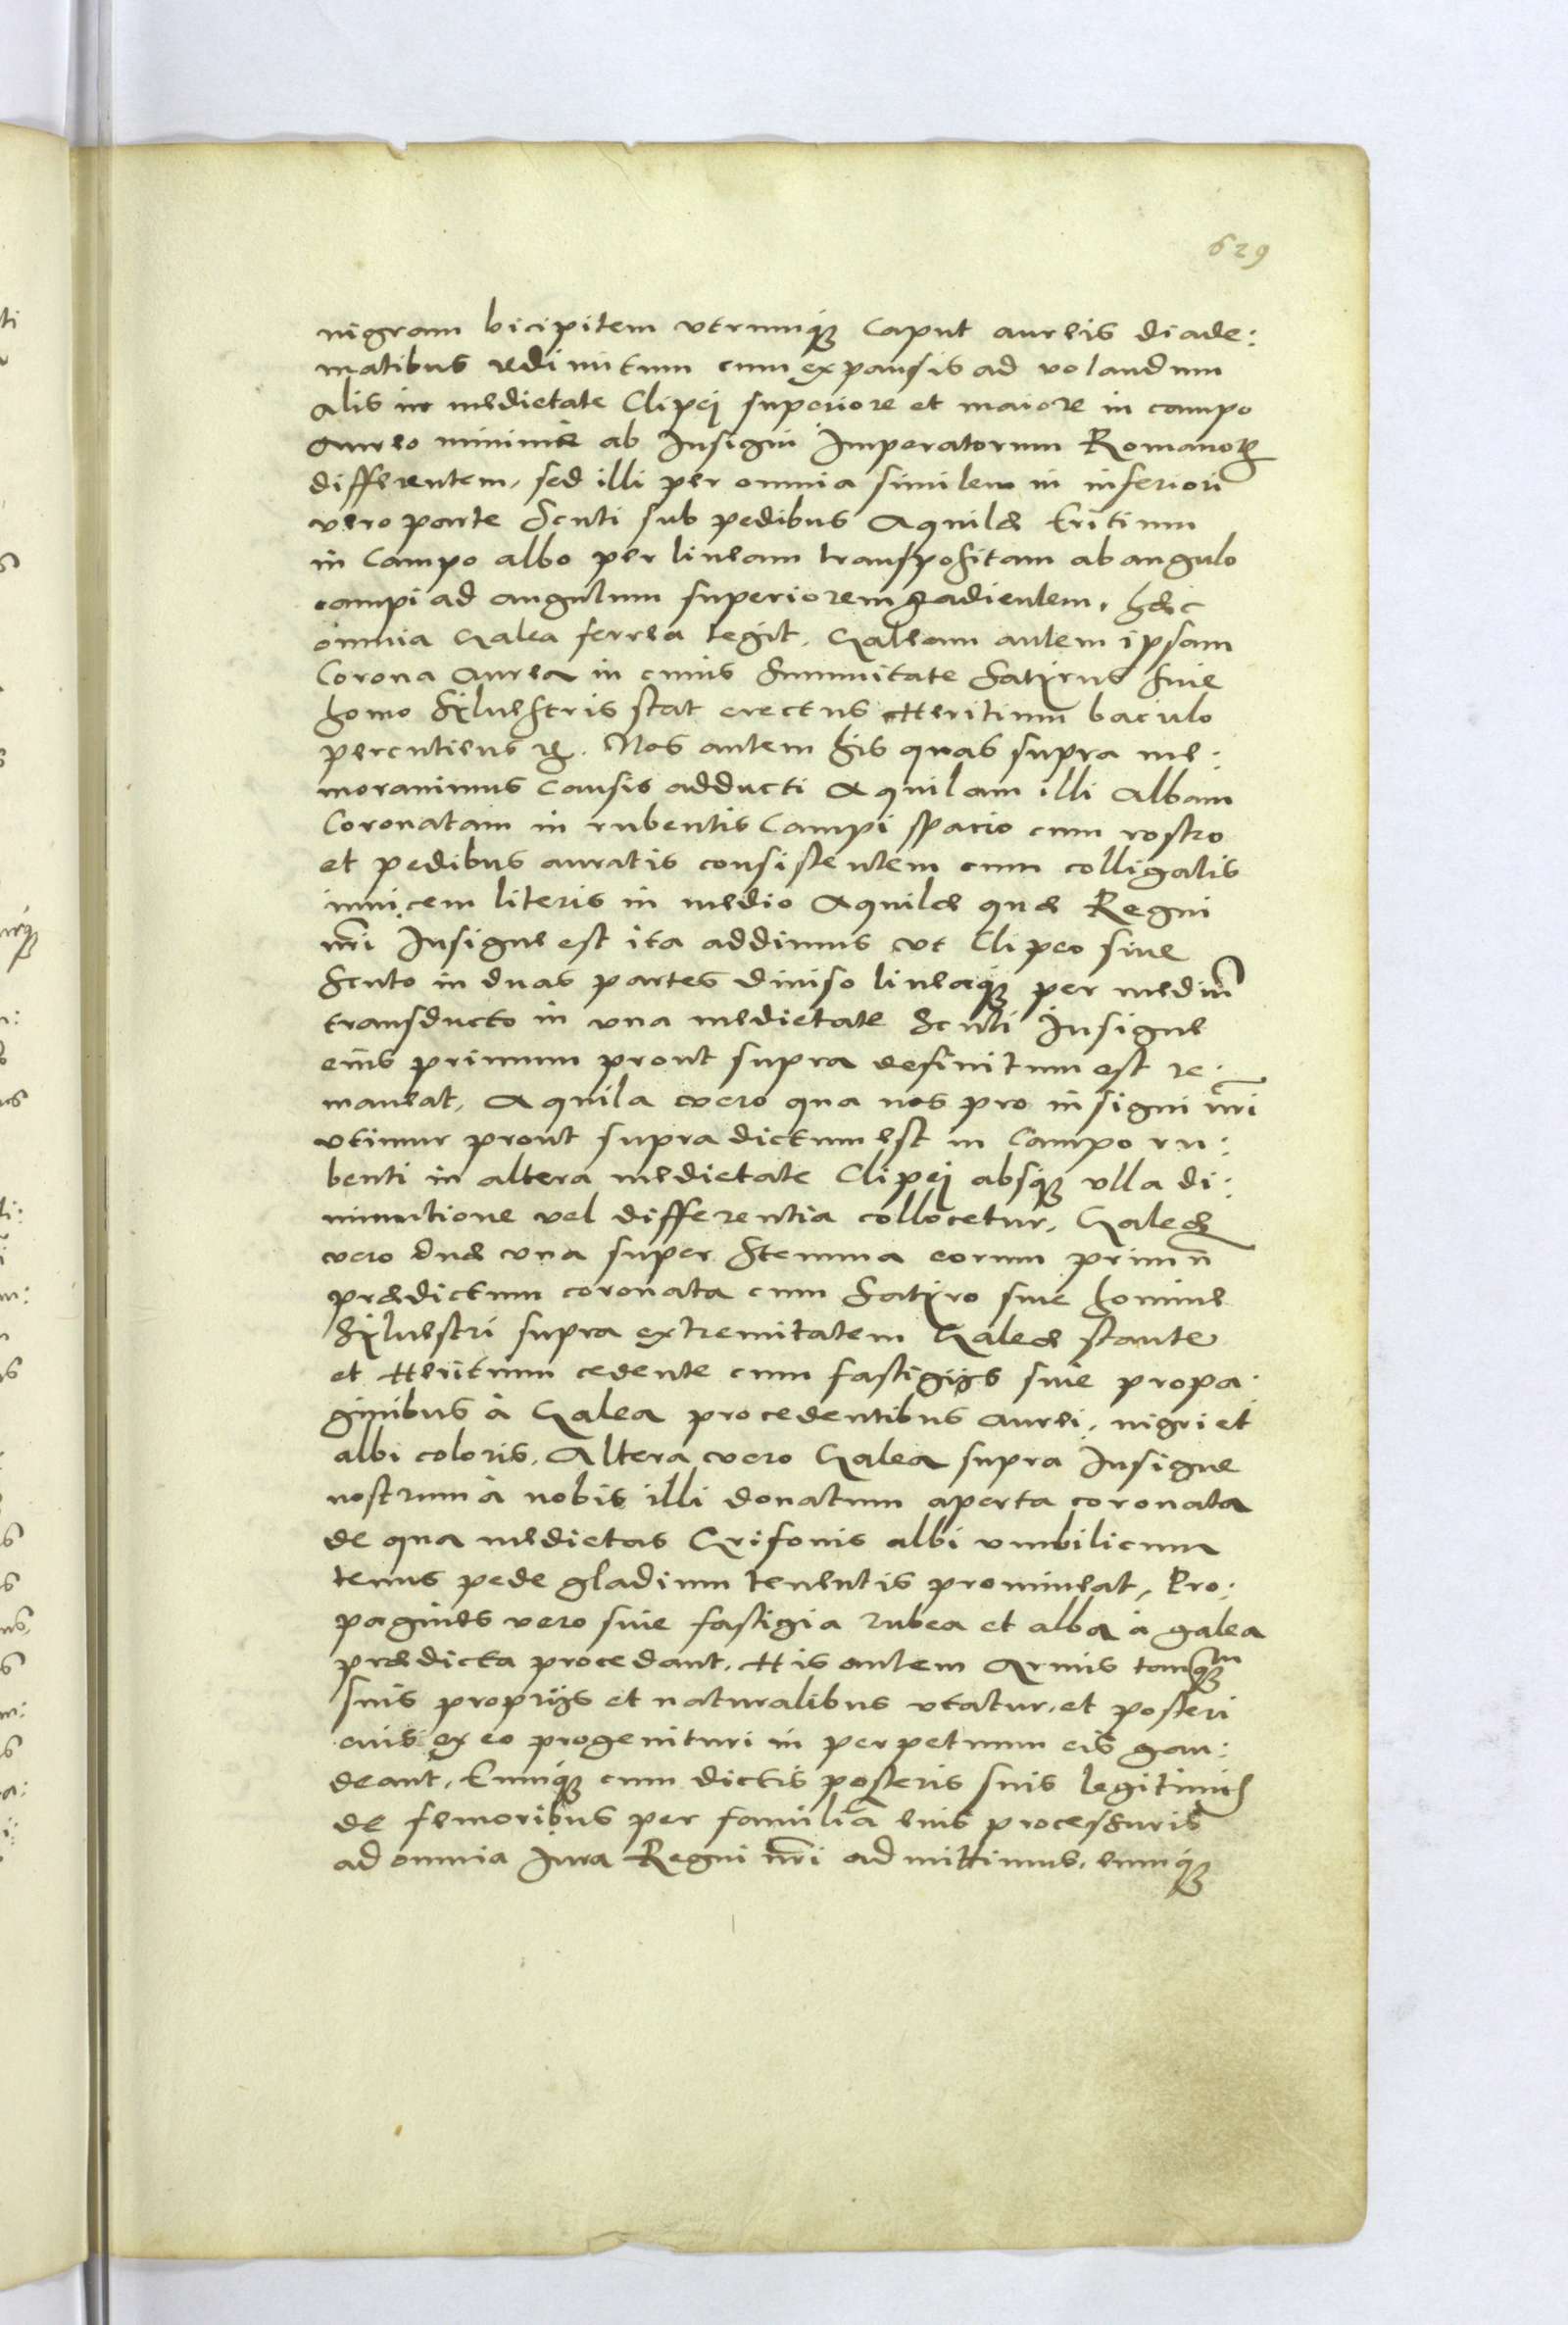 629
nigram bicipitem vtrumq₃ Caput aureis diade:
matibus redimitum cum expansis ad volandum
alis in medietate Clipej superiore et maiore in campo
Aureo minime ab Insigni Imperatorum Romanoꝝ
differentem, sed illi per omnia similem in inferiori
vero parte Scuti sub pedibus Aquilæ Eritium
in Campo albo per lineam transpositam ab angulo
campi ad angulum superiorem gradientem, hæc
omnia Galea ferrea tegit. Galeam autem ipsam
Corona Aurea in cuius Summitate Satyrus siue
homo Syluestris stat erectus Heritium baculo
percutiens ꝛc. Nos autem his quas supra me:
morauimus Causis adducti Aquilam illi Albam
Coronatam in rubentis Campi spacio cum rostro
et pedibus auratis consistentem cum colligatis
inuicem literis in medio Aquilæ quæ Regni
nr̃i Insigne est ita addimus vt Clipeo siue
Scuto in duas partes diuiso lineaq₃ per mediũ
transducto in vna medietate Scuti Insigne
eius primum prout supra definitum est re:
maneat, Aquila vero qua nos pro insigni nr̃i
vtimur prout supradictum est in Campo ru:
benti in altera medietate Clipej absq₃ vlla di:
minutione vel differentia collocetur, Galeæ
vero duæ vna super Stemma eorum primũ
prædictum coronata cum Satyro siue homine
Syluestri supra extremitatem Galeæ stante
et Heritium cedente cum fastigijs siue propa:
ginibus à Galea procedentibus aurei, nigri et
albi coloris, Altera vero Galea supra Insigne
nostrum à nobis illi donatum aperta coronata
de qua medietas Grifonis albi vmbilicum
tenus pede gladium tenentis promineat, Pro:
pagines vero siue fastigia rubea et alba à galea
prædicta procedant. His autem Armis tanq̃m
suis proprijs et naturalibus vtatur, et posteri
euis ex eo progenituri in perpetuum eis gau:
deant, Eumq₃ cum dictis posteris suis legitimis
de femoribus per familiã eius processuris
ad omnia Iura Regni nr̃i admittimus, eumq₃